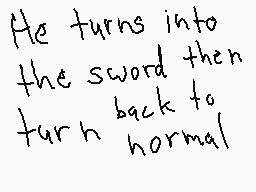 He turns into
the sword then
turn back to
normal